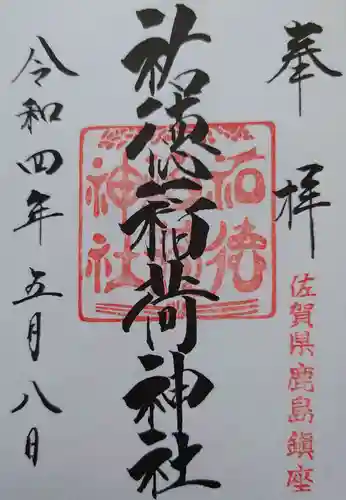 奉拝
佐賀県鹿島鎮座
祐徳稲荷神社
令和四年五月八日